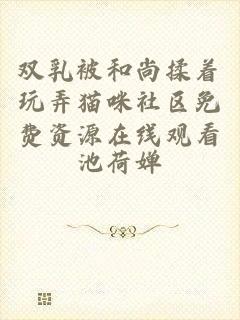 双乳被和尚揉着
玩弄猫咪社区免
费资源在线观看
池荷婵